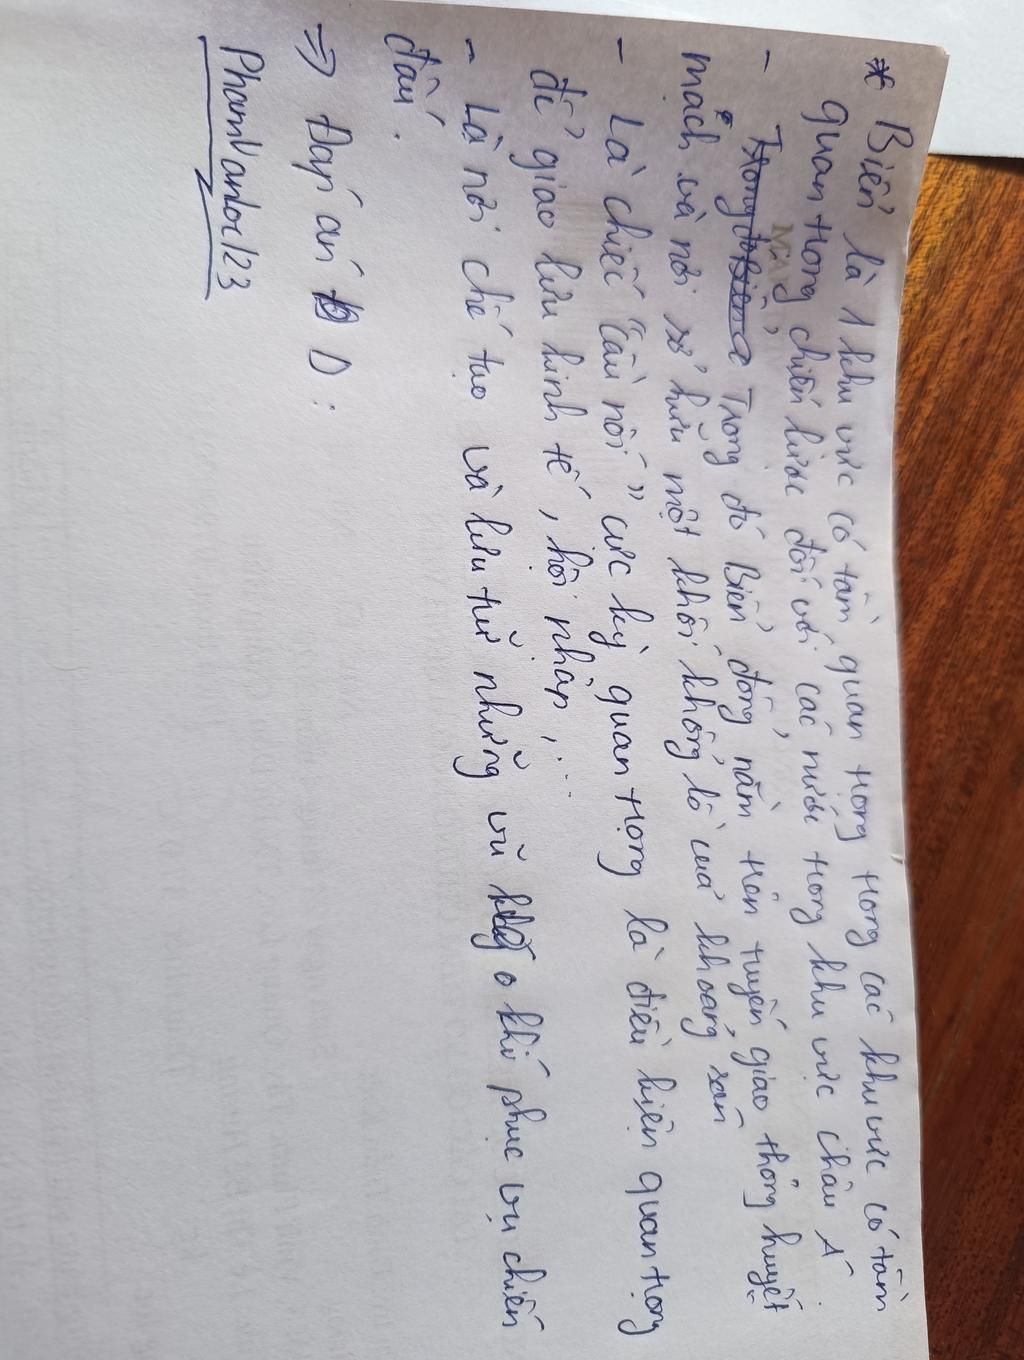 * Biển là 1 khu vực có tầm quan trọng trong các khu vực có tầm
quan trọng chiến lược đối với các nước trong khu vực châu Á
- Trong đó Biển Trong đó Biển đông nằm trên tuyến giao thông huyết
mạch và nơi sở hữu một khối khổng lồ của khoáng sản
- Là chiếc "cầu nối" cực kỳ quan trọng là điều kiện quan trọng
để giao lưu kinh tế, hội nhập, ...
- Là nơi chế tạo và lưu trữ những vũ khí phục vụ chiến
đấu.
=> Đáp án D:
PhamVanloc123